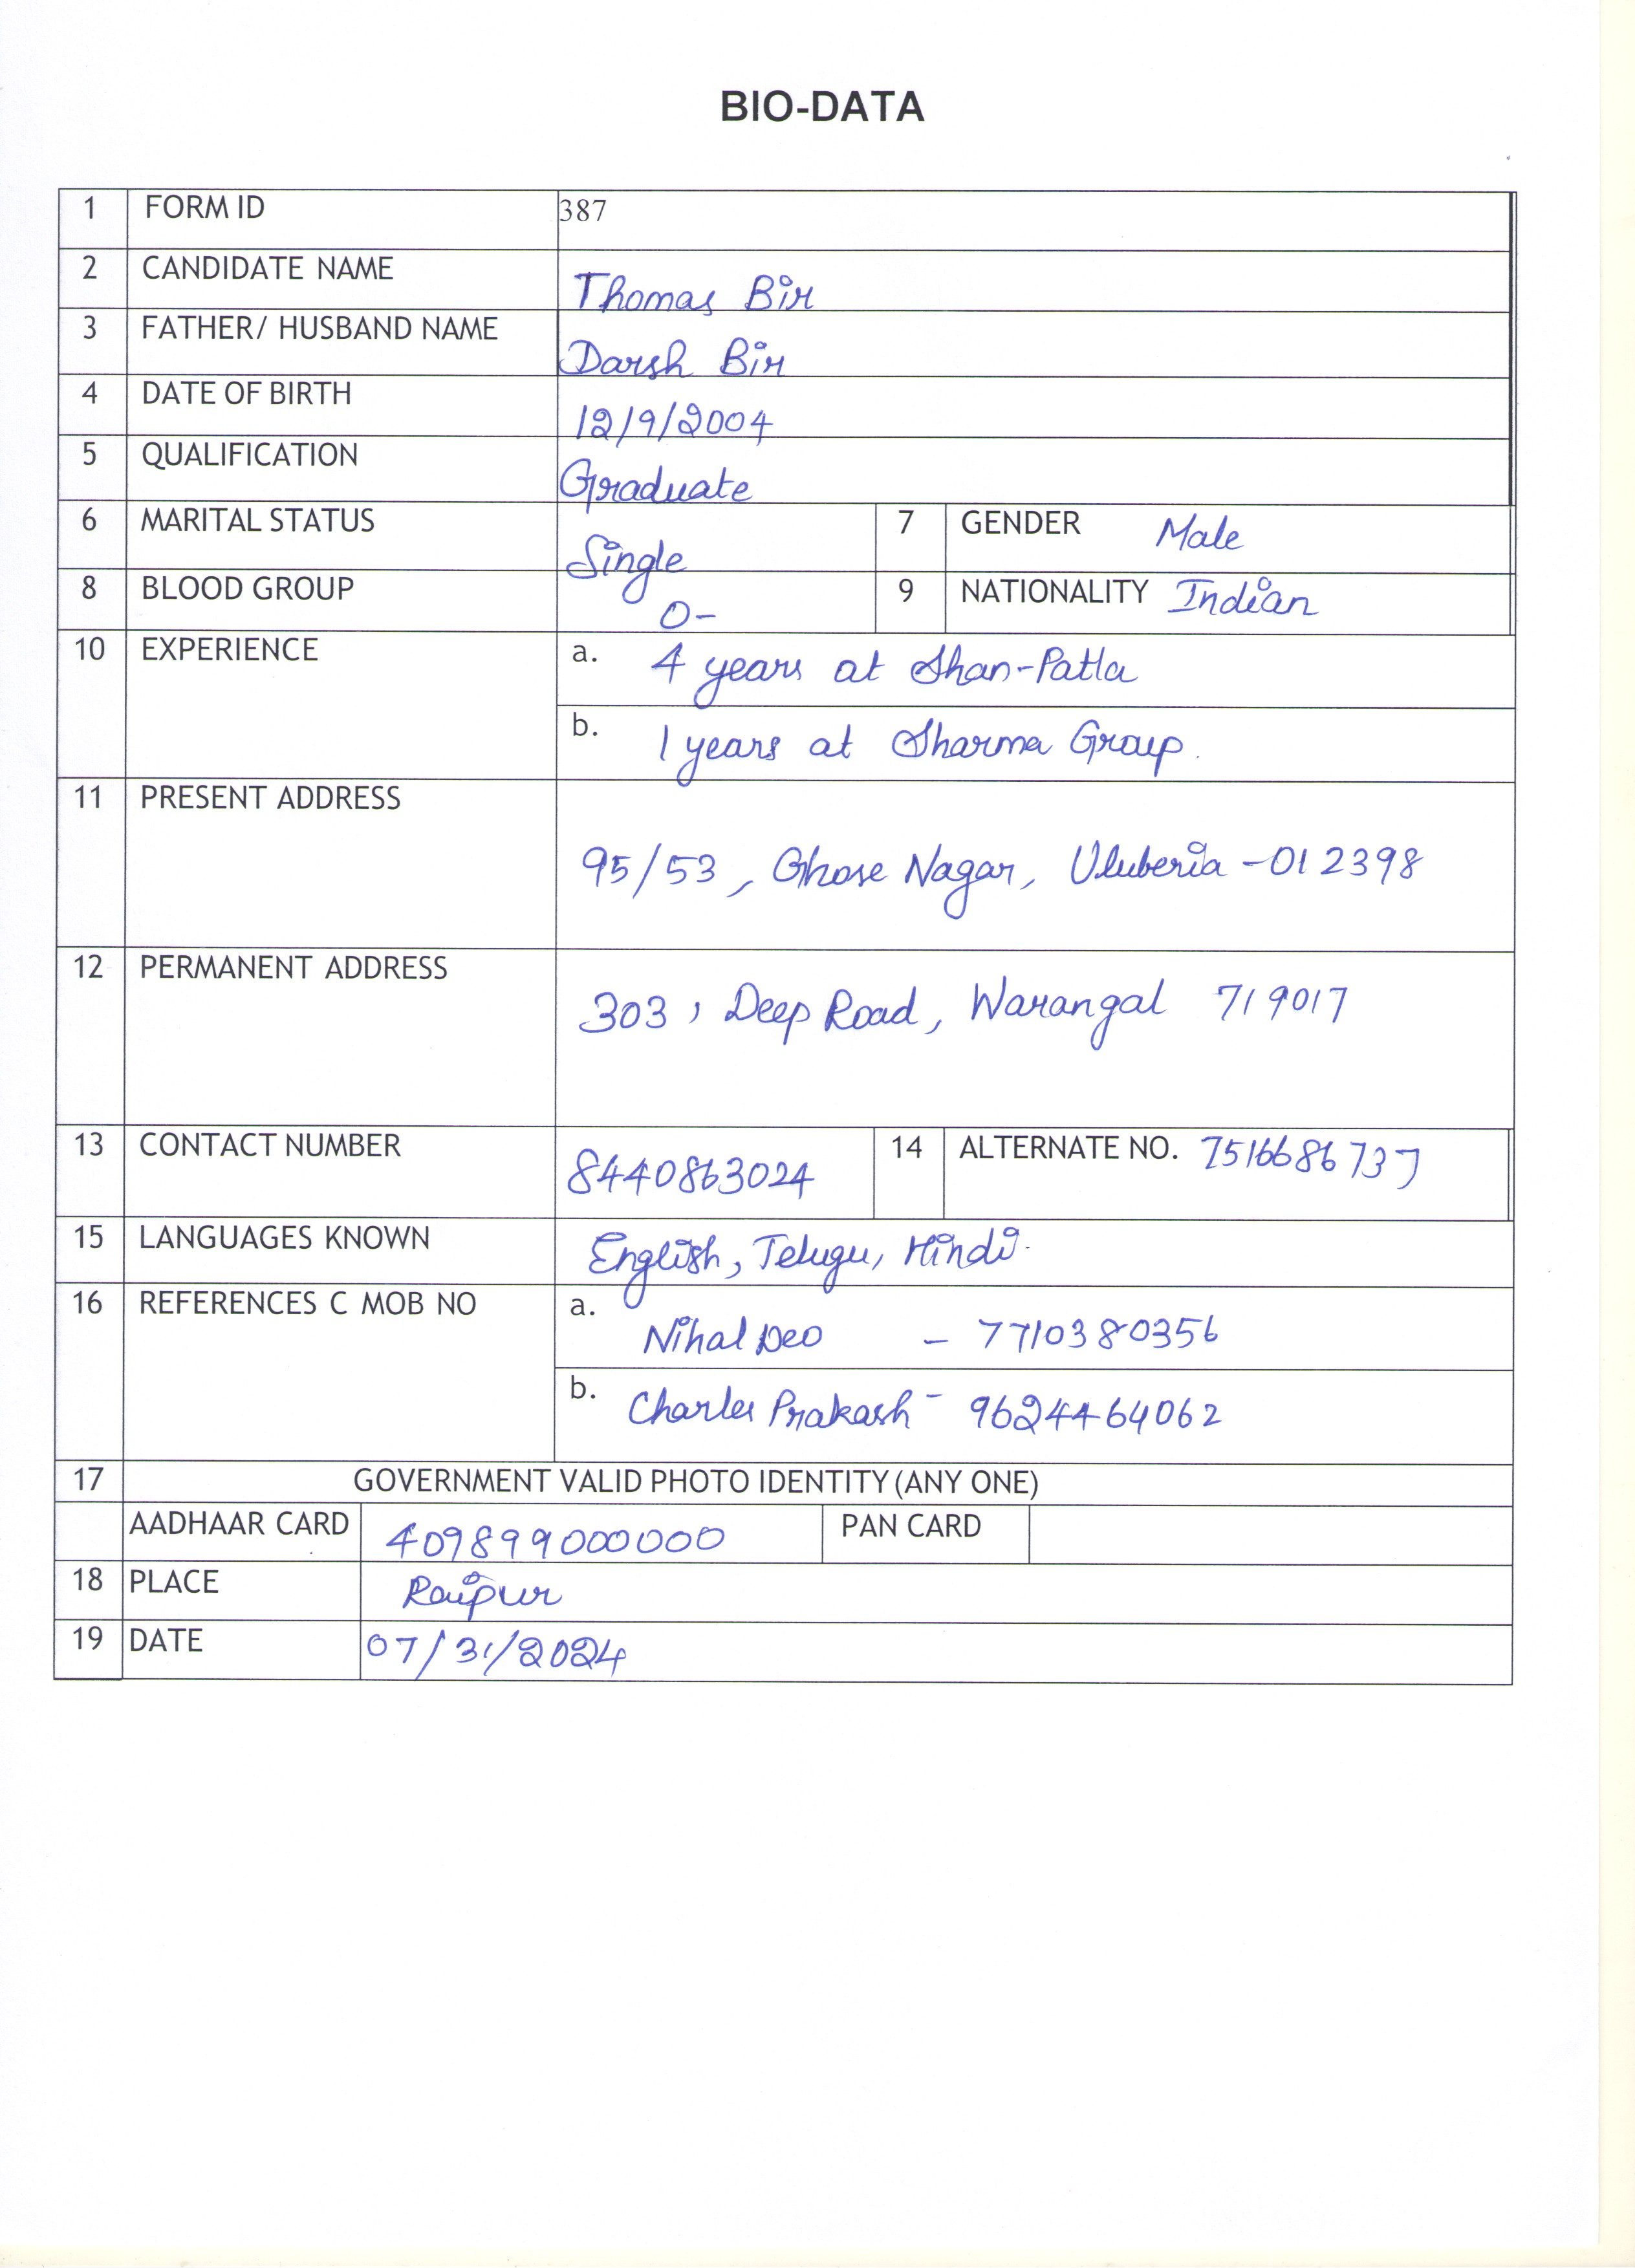 BIO-DATA
1 FORM ID 387
2 CANDIDATE NAME Thomas Bir
3 FATHER/ HUSBAND NAME Darsh Bir
4 DATE OF BIRTH 12/9/2004
5 QUALIFICATION Graduate
6 MARITAL STATUS Single 7 GENDER Male
8 BLOOD GROUP O- 9 NATIONALITY Indian
10 EXPERIENCE a. 4 years at Shan-Patla
b. 1 years at Sharma Group.
11 PRESENT ADDRESS
95/53, Ghose Nagar, Uluberia -012398
12 PERMANENT ADDRESS
303, Deep Road, Warangal 719017
13 CONTACT NUMBER 8440863024 14 ALTERNATE NO. 7516686737
15 LANGUAGES KNOWN English, Telugu, Hindi.
16 REFERENCES C MOB NO a. Nihal Deo - 7710380356
b. Charles Prakash - 9624464062
17 GOVERNMENT VALID PHOTO IDENTITY (ANY ONE)
AADHAAR CARD 409899000000 PAN CARD
18 PLACE Raipur
19 DATE 07/31/2024